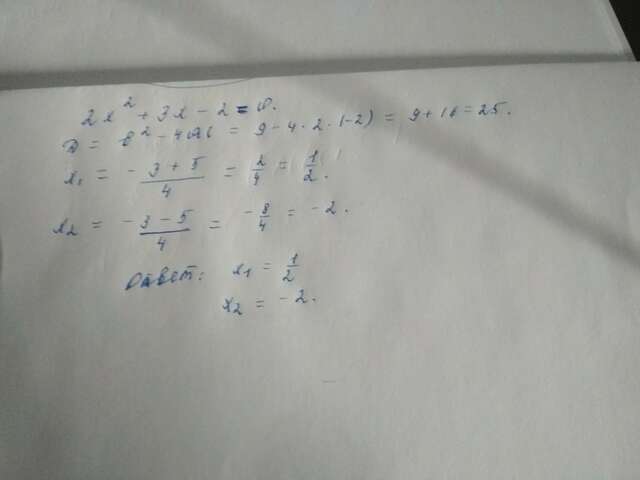 2x² + 3x - 2 = 0.
D = b² - 4ac = 9 - 4 · 2 · (-2) = 9 + 16 = 25.
x₁ = -3 + 5 / 4 = 2/4 = 1/2.
x₂ = -3 - 5 / 4 = -8/4 = -2.
Ответ: x₁ = 1/2
x₂ = -2.